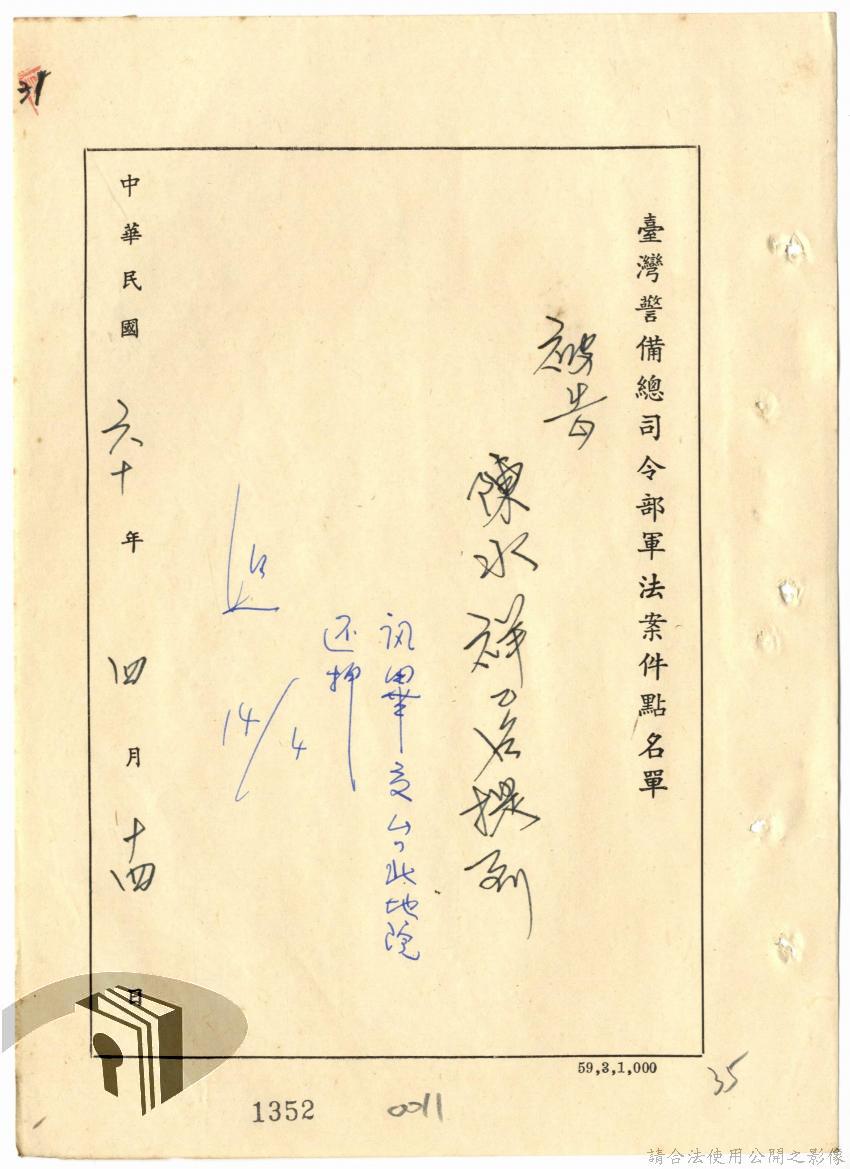 臺灣警備總司令部軍法案件點名單
被告
陳水祥一名提到
訊畢交台北地院
还押
14/4
中華民國六十年四月十四日
59,3,1,000
35
1352
0011
31
請合法使用公開之影像